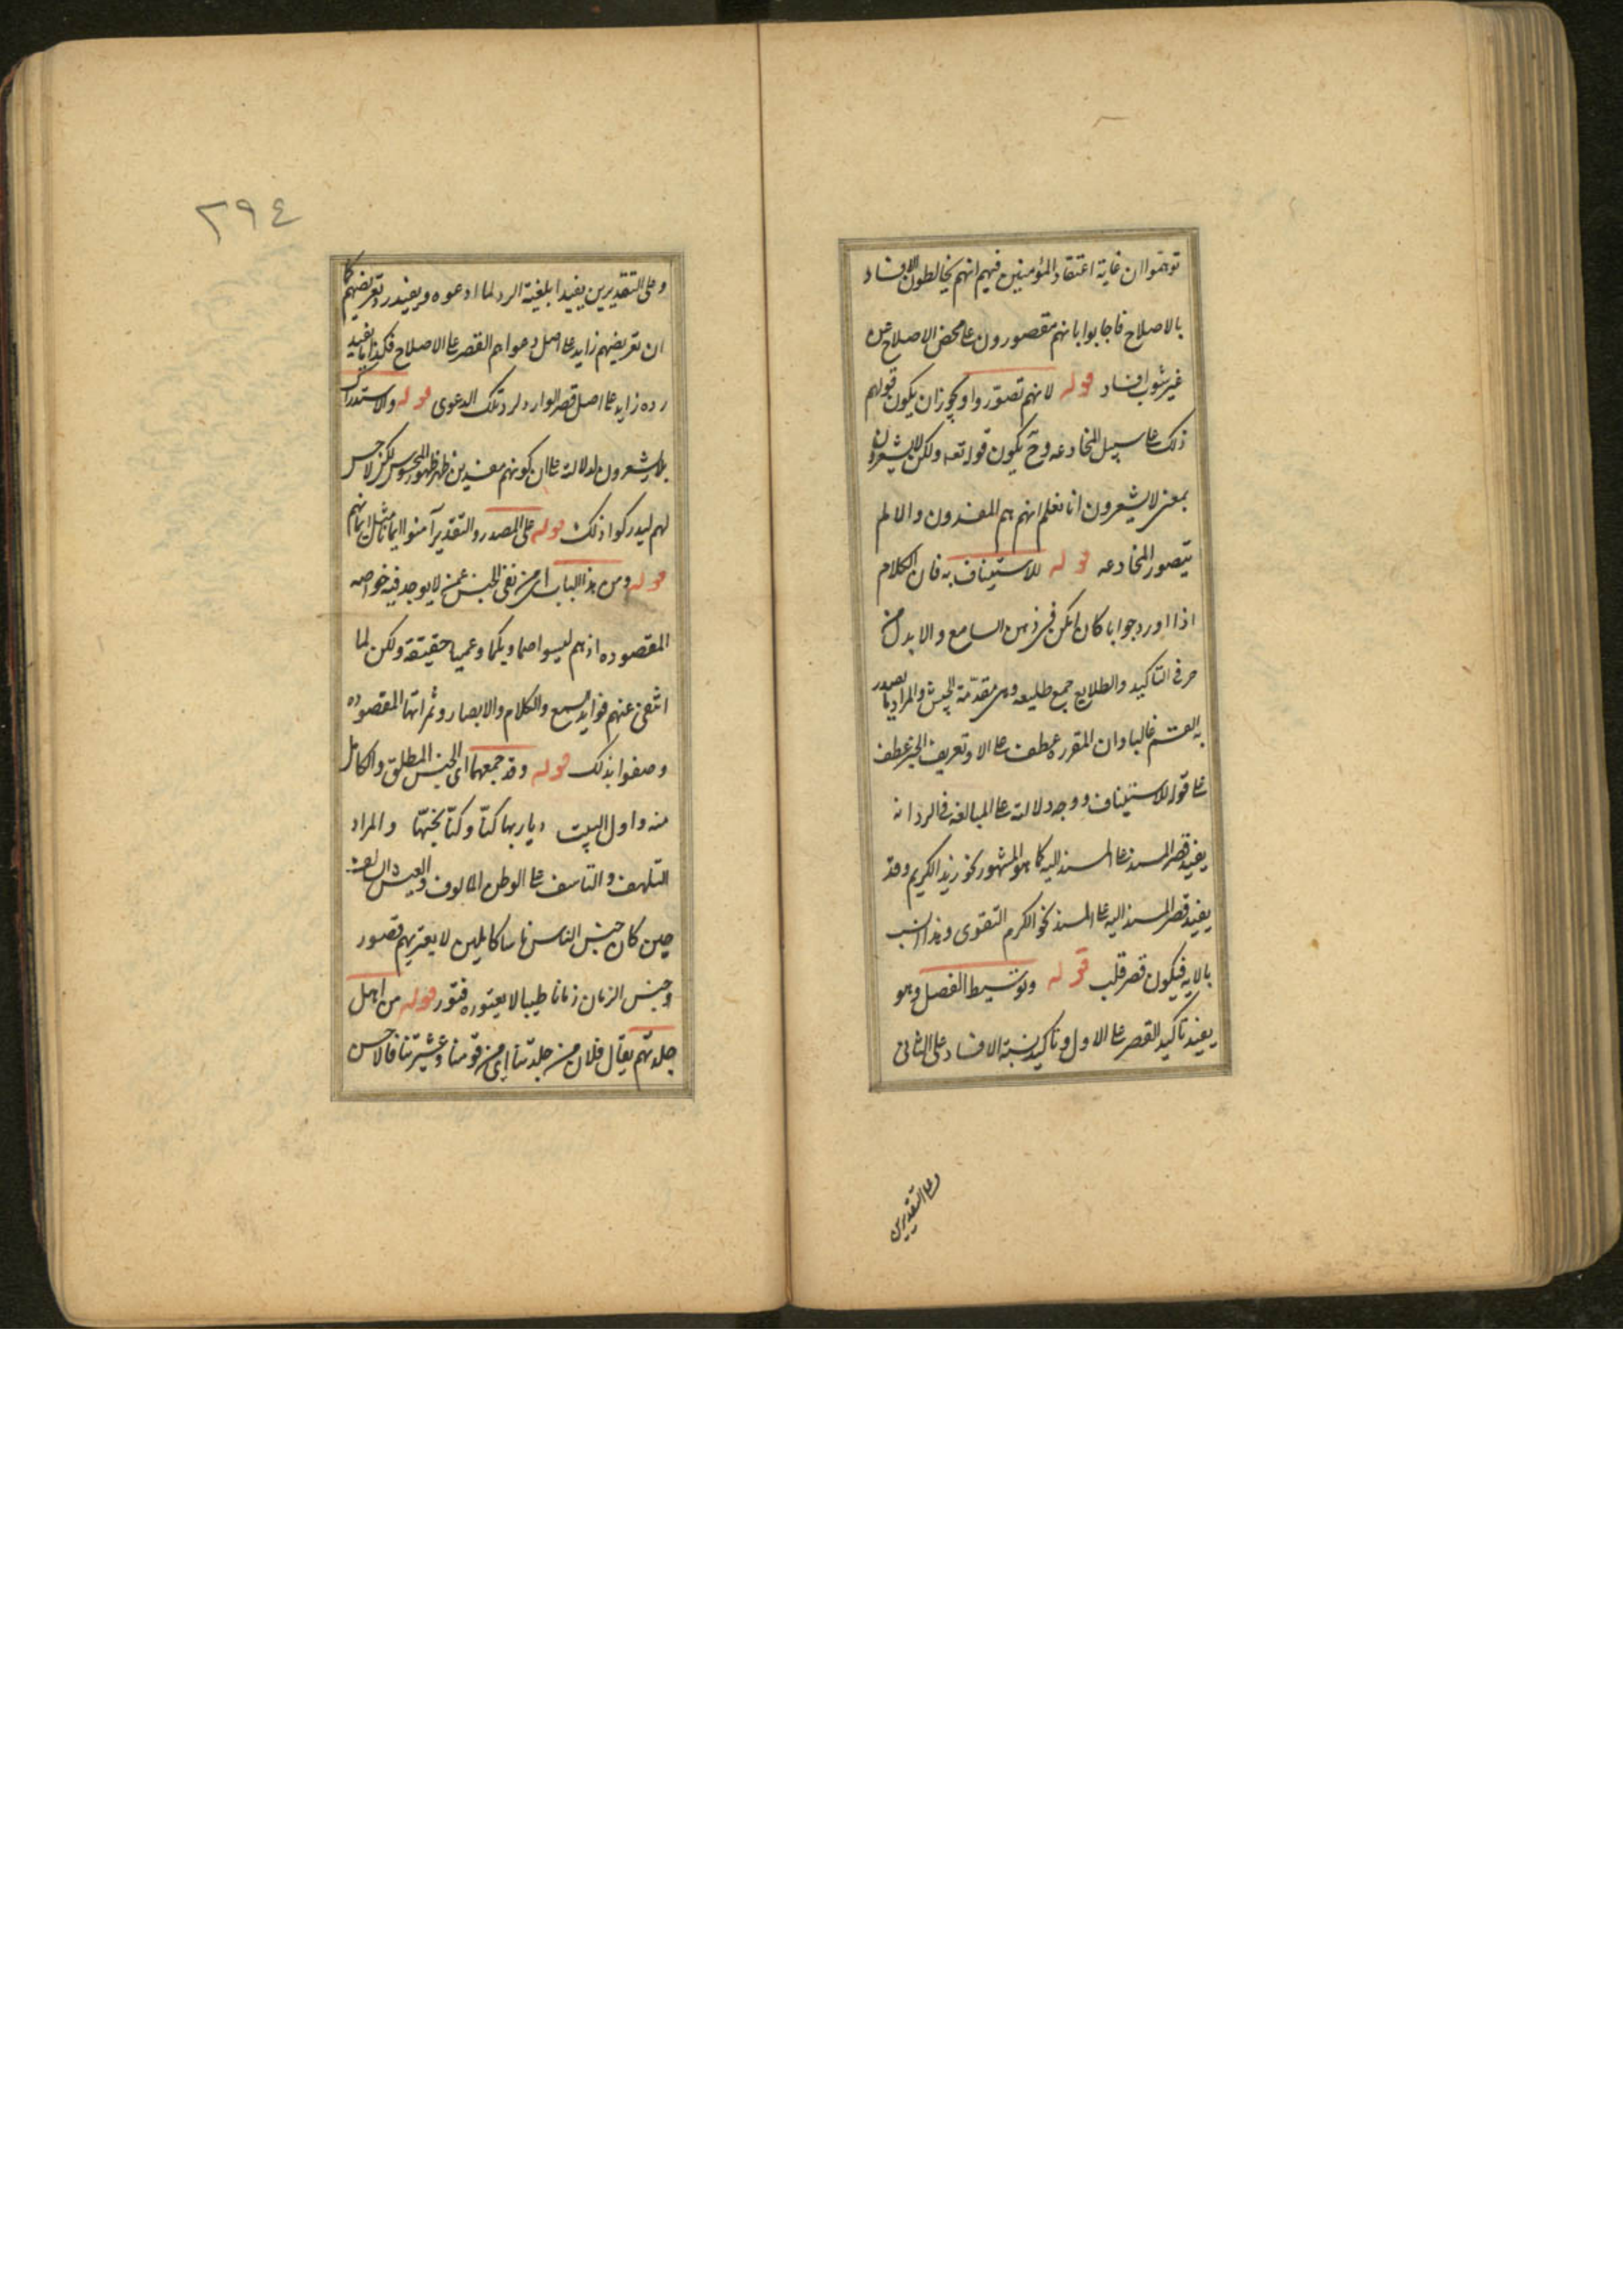 توهموا ان غاية اعتقاد المؤمنين فيهم انهم يخالطون الافساد
بالاصلاح فاجابوا بانهم مقصورون على محض الاصلاح من
غير شوب افساد قوله لانهم تصوروا ويجوز ان يكون قولهم
ذلك على سبيل المخادعه وح يكون قوله تعه ولكن لا يشعرون
بمعنى لا يشعرون انا نعلم انهم هم المفسدون والا لم
يتصور المخادعه قوله للاستيناف به فان الكلام
اذا اورد جوابا كان امكن في ذهن السامع والا بدل من
حرفى التاكيد والطلايع جمع طليعه وهى مقدمة الجيش والمراد بها ما يصدر
به القسم غالبا وان المقرره عطف على الا وتعريف الخبر عطف
على قوله للاستيناف ووجه دلالته على المبالغه فى الرد انه
يفيد قصر المسند على المسند اليه كما هو المشهور نحو زيد الكريم وقد
يفيد قصر المسند اليه على المسند نحو الكرم التقوى وهذا انسب
بالايه فيكون قصر قلب قوله وتوسيط الفصل وهو
يفيد تاكيد القصر على الاول وتاكيد نسبة الافساد على الثانى
وعلى التقديرين
٢٩٤
وعلى التقديرين يفيد ابلغية الرد لما ادعوه ويفيد رد تعريضهم كما
ان تعريضهم زايد على اصل دعواهم القصر على الاصلاح فكذا ما يفيد
رده زايد على اصل قصر الوارد لرد تلك الدعوى قوله والاستدراك
بلا يشعرون لدلالته على ان كونهم مفسدين ظهر ظهور المحسوس لكن لا حس
لهم ليدركوا ذلك قوله على المصدر والتقدير آمنوا ايمانا مثل ايمانهم
قوله ومن هذا الباب اى من نفى الجنس عمن لا يوجد فيه خواصه
المقصوده اذ هم ليسوا صما وبكما وعميا حقيقة ولكن لما
انتفى عنهم فوايد السمع والكلام والابصار وثمراتها المقصوده
وصفوا بذلك قوله وقد جمعهما اى الجنس المطلق والكامل
منه واول البيت ديار بها كنا وكنا نحبها والمراد
التلهف والتاسف على الوطن المالوف والعيش السالف
حين كان جنس الناس ناسا كاملين لا يعتريهم قصور
وجنس الزمان زمانا طيبا لا يعتوره فتور قوله من اهل
جلدتهم يقال فلان من جلدتنا اى من قومنا وعشيرتنا فالاحسن